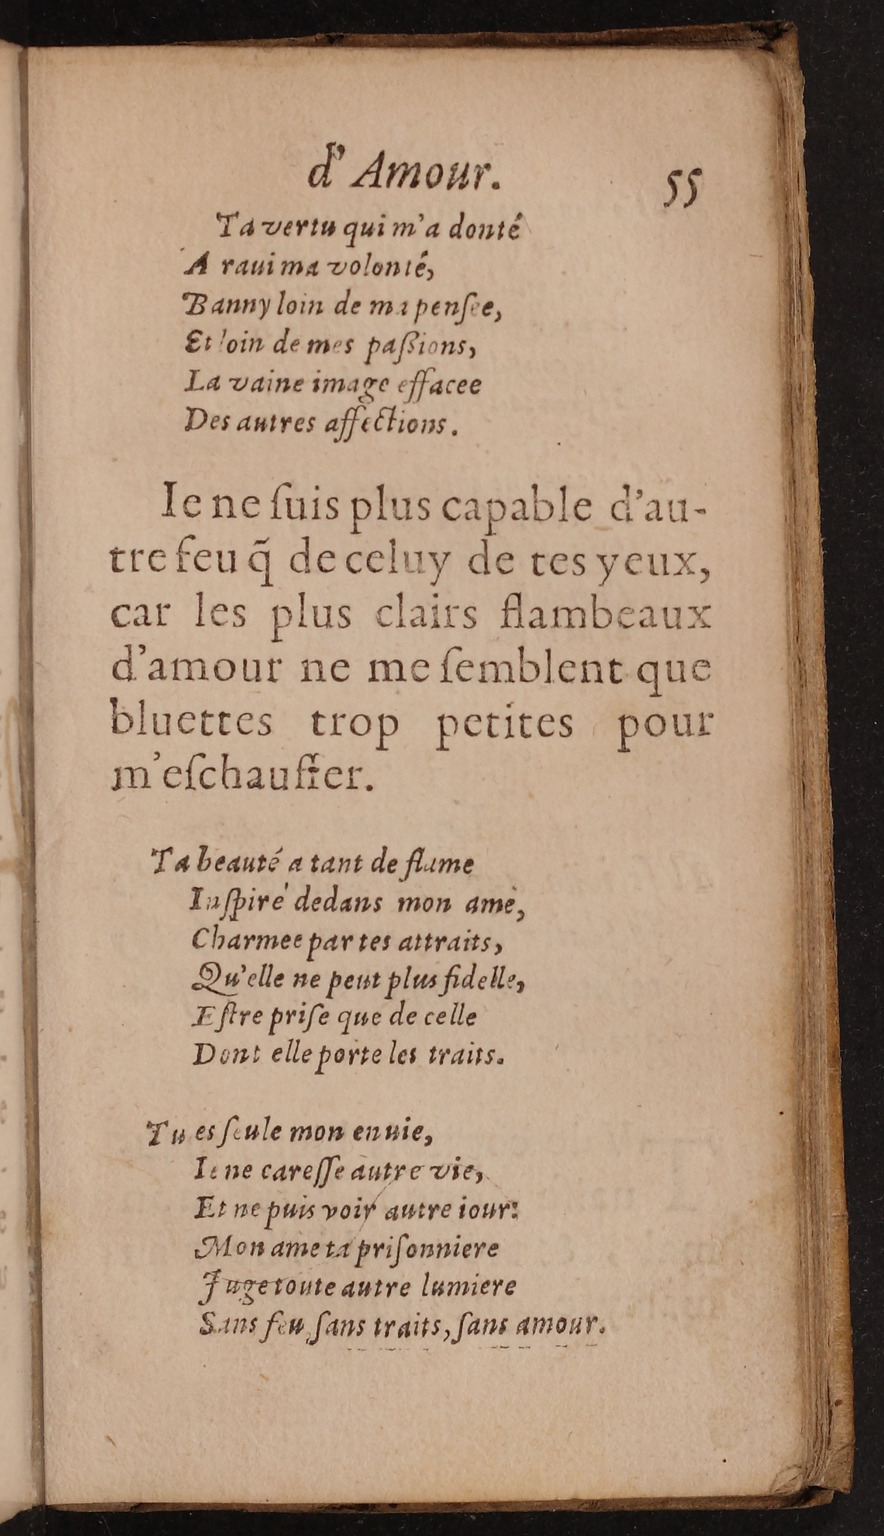 d'Amour.
55
Ta vertu qui m'a donté
A raui ma volonté,
Banny loin de ma penſee,
Et loin de mes paſſions,
La vaine image effacee
Des autres affections.
Ie ne ſuis plus capable d'au-
tre feu q̃ de celuy de tes yeux,
car les plus clairs flambeaux
d'amour ne me ſemblent que
bluettes trop petites pour
m'eſchauffer.
Ta beauté a tant de flame
Inſpiré dedans mon ame,
Charmee par tes attraits,
Qu'elle ne peut plus fidelle,
Eſtre priſe que de celle
Dont elle porte les traits.
Tu es ſeule mon enuie,
Ie ne careſſe autre vie,
Et ne puis voir autre iour:
Mon ame ta priſonniere
Iuge toute autre lumiere
Sans feu, ſans traits, ſans amour.